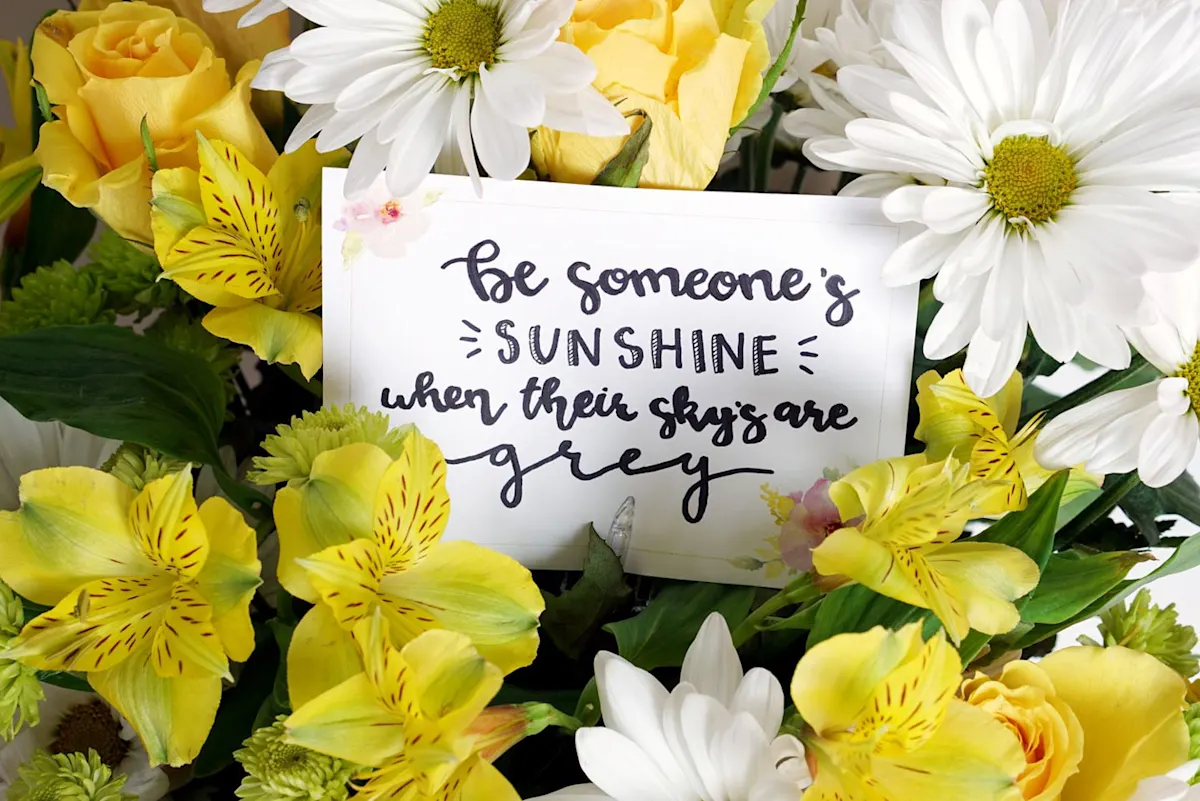 be someone's
SUNSHINE
when their sky's are
grey